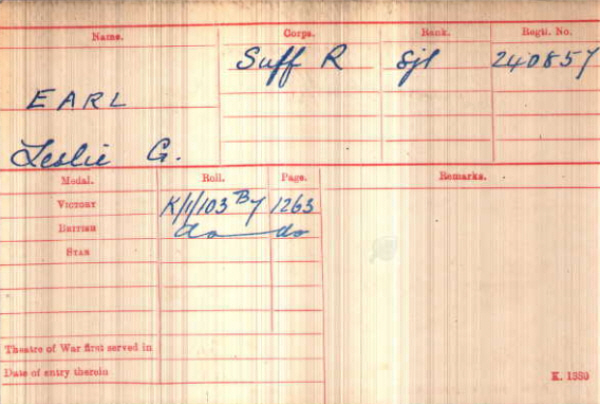 Name. Corps. Rank. Regtl. No.
Suff R Sjt 240857
EARL
Leslie G.
Medal. Roll. Page. Remarks.
VICTORY K/1/103 B7 1263
BRITISH do do
STAR
Theatre of War first served in
Date of entry therein
K. 1380